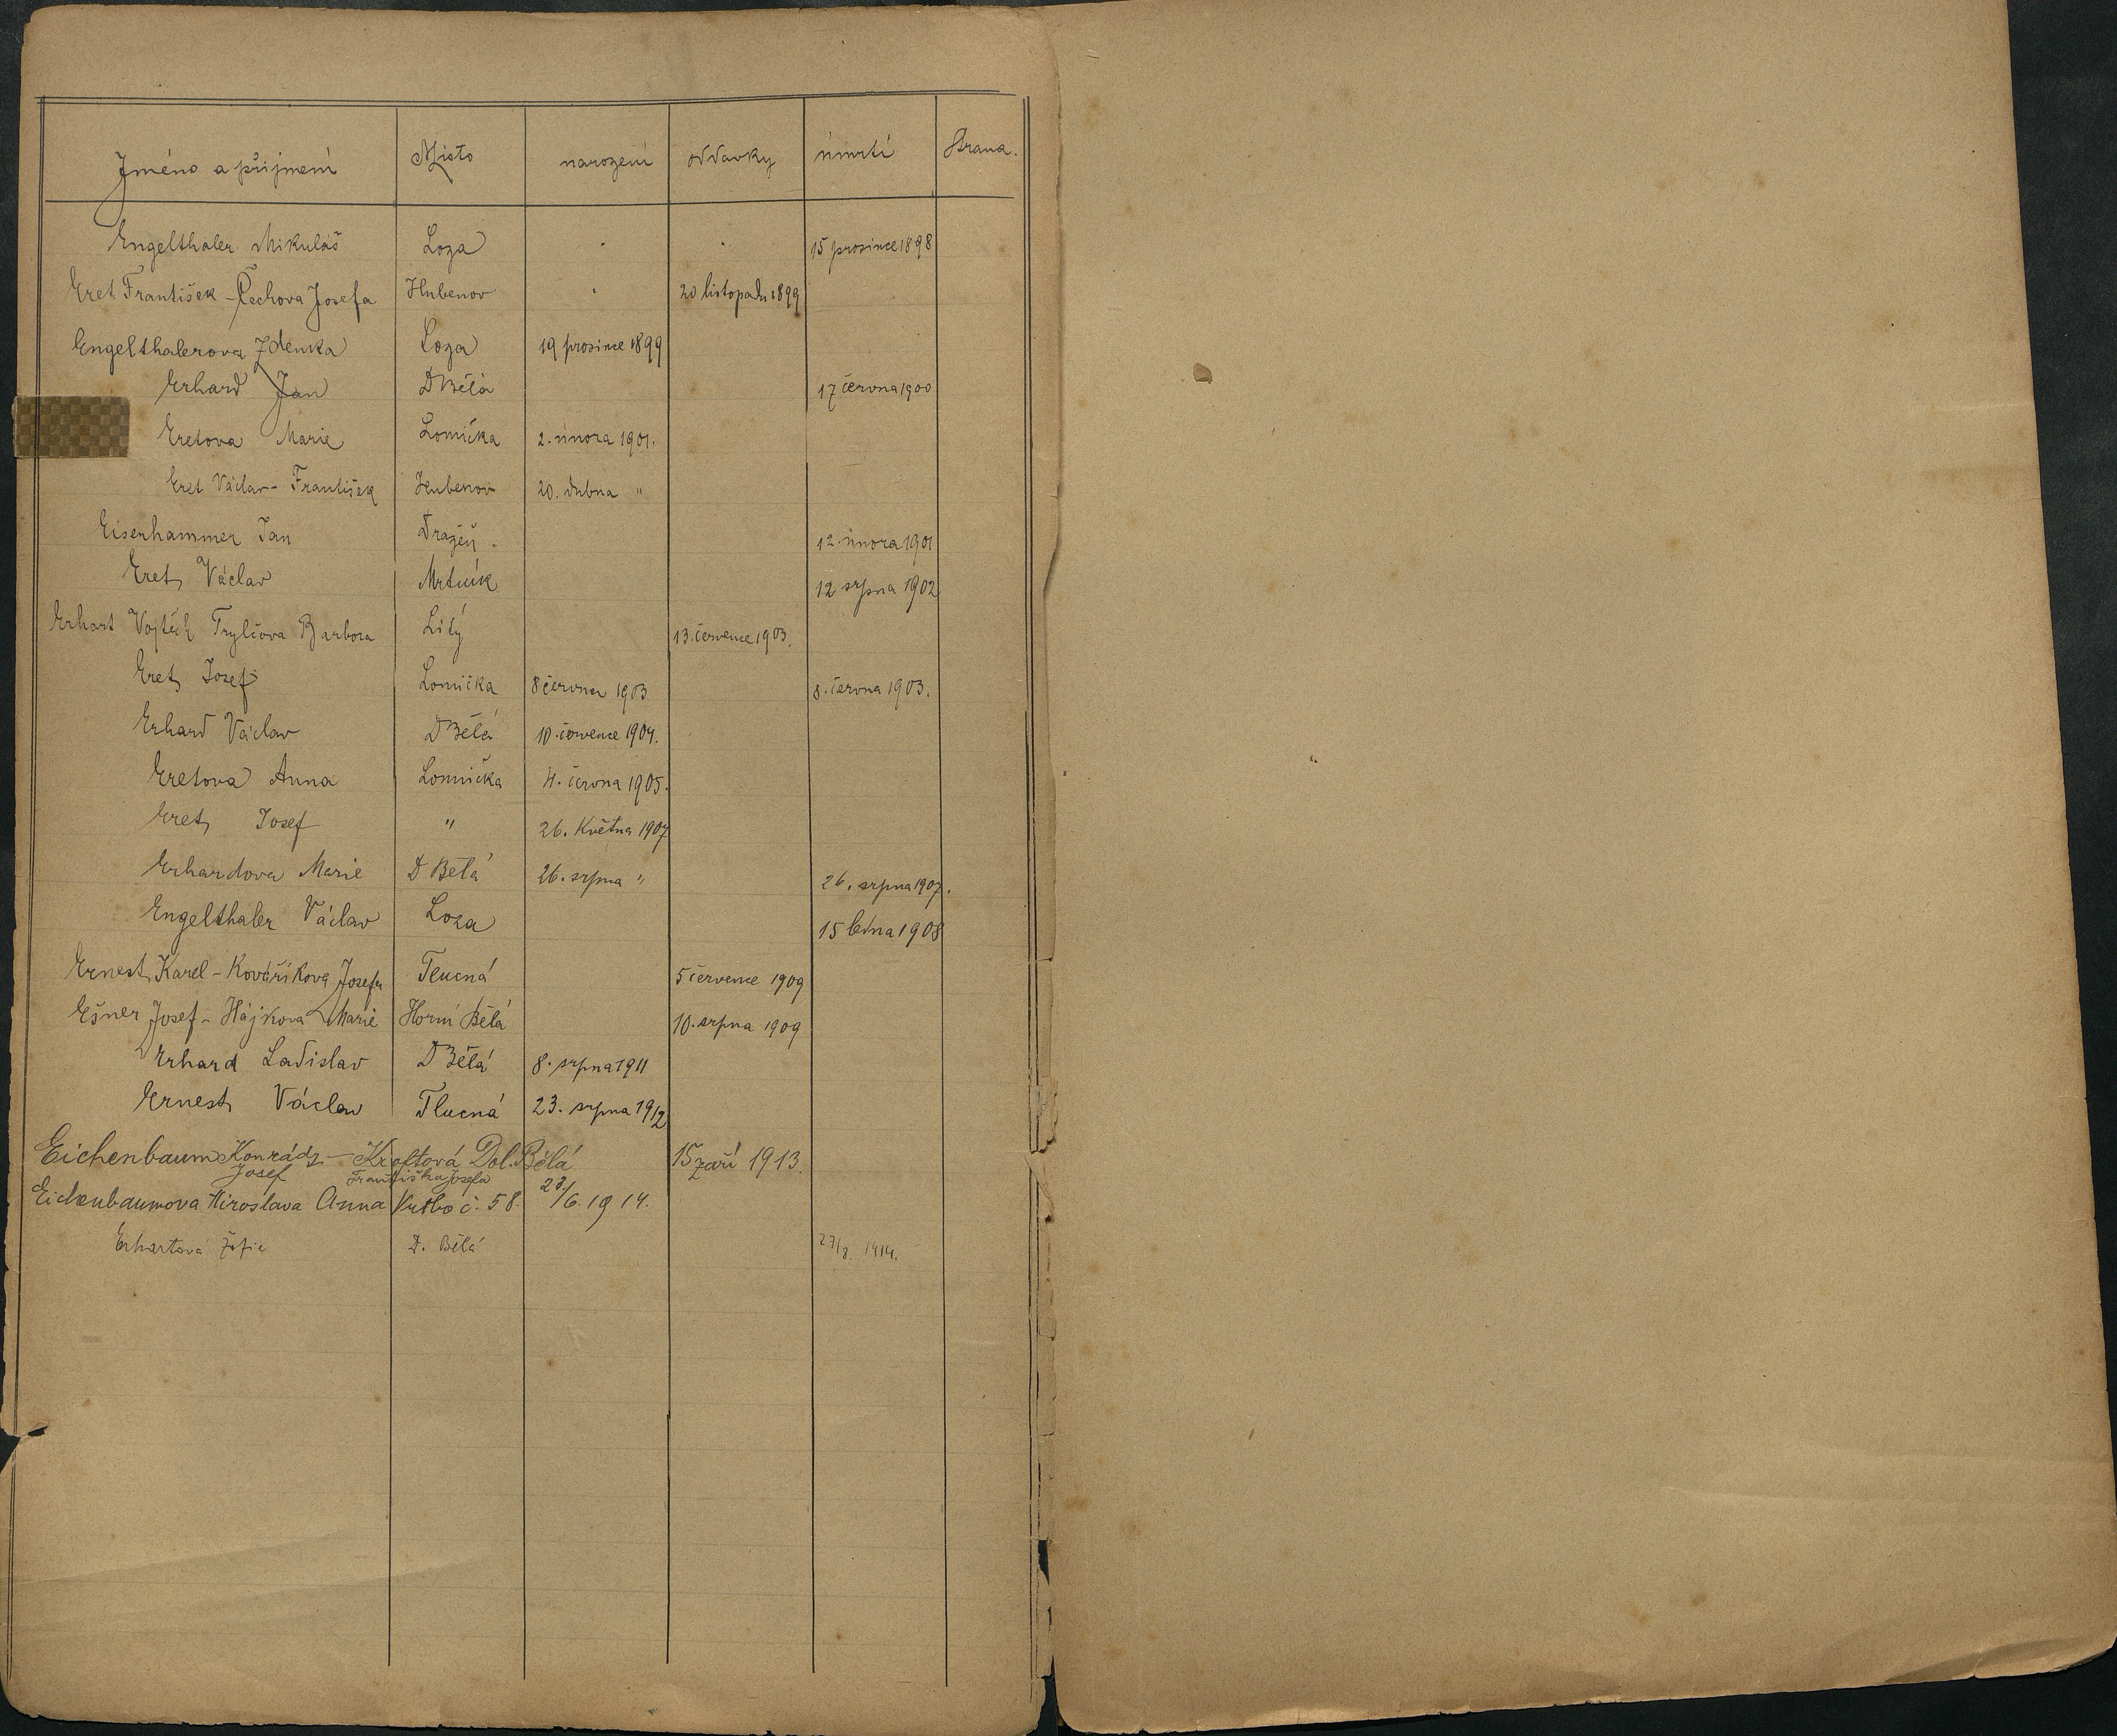 Jméno a přijmení Místo narození oddavky úmrtí Strana.
Engelthaler Mikuláš Loza 15 prosince 1898
Eret František - Čechova Josefa Hubenov 20 listopadu 1899
Engelthalerova Zdenka Loza 19 prosince 1899
Erhard Jan D Bělá 17 června 1900
Eretova Marie Lomička 2. února 1901.
Eret Václav - František Hubenov 20. dubna "
Eisenhammer Jan Dražeň. 12. února 1901
Eret Václav Mrtník 12 srpna 1902
Erhart Vojtěch Barbora Lité 13. července 1903.
Eret Josef Lomička 8 června 1903 8. června 1903.
Erhard Václav D Bělá 10. července 1904.
Eretova Anna Lomnička 4. června 1905.
Eret Josef " 26. Května 1907
Erhardova Marie D Bělá 26. srpna " 26. srpna 1907.
Engelthaler Václav Loza 15 ledna 1908
Ernest Karel - Kovaříkova Josefa Tlucná 5 července 1909
Ešner Josef - Hájkova Marie Horní Bělá 10. srpna 1909
Erhard Ladislav D Bělá 8. srpna 1911
Ernest Václav Tlucná 23. srpna 1912
Eichenbaum Konrád - Kroftová Dol. Bělá 15 září 1913.
Josef Františka Josefa
Eichenbaumova Miroslava Anna č. 58. 23/6. 1914.
Erhartová Žofie D. Bělá 27/8. 1914.